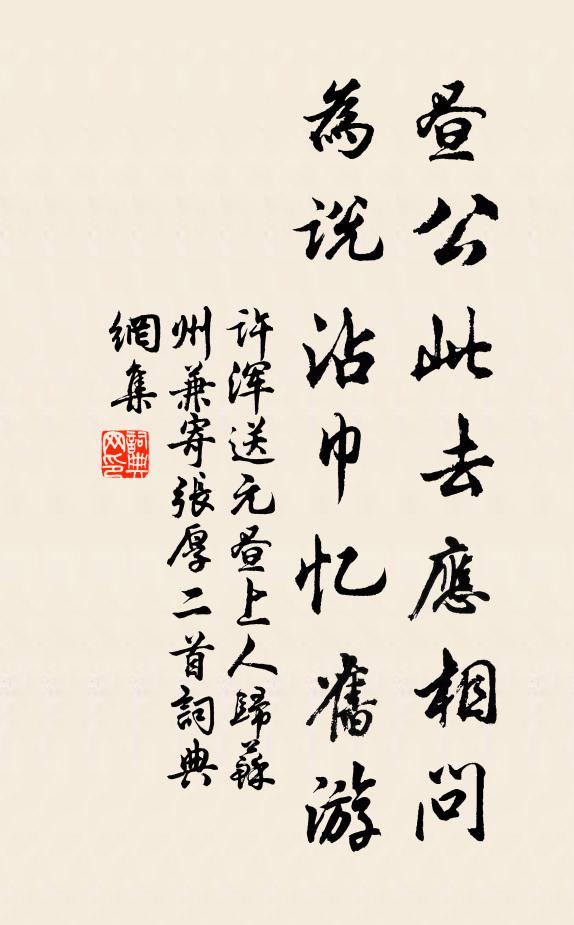 昼公此去應相問
為说沾巾忆舊游
許渾送元昼上人歸蘇
州兼寄張厚二首詞典
網集
詞典
网印